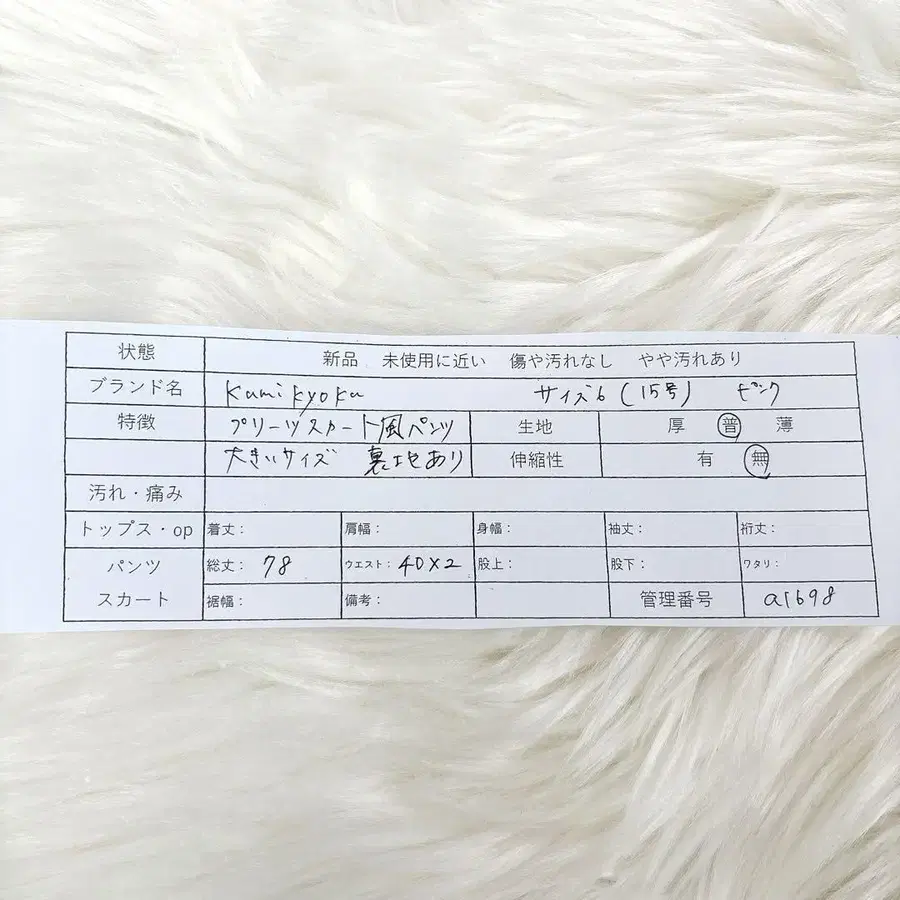 状態 新品 未使用に近い 傷や汚れなし やや汚れあり
ブランド名 Kumikyoku サイズ6 (15号) ピンク
特徴 プリーツスカート風パンツ 生地 厚 普 薄
大きいサイズ 裏地あり 伸縮性 有 無
汚れ・痛み
トップス・op 着丈: 肩幅: 身幅: 袖丈: 裄丈:
パンツ 総丈: 78 ウエスト: 40×2 股上: 股下: ワタリ:
スカート 裾幅: 備考: 管理番号 a1698